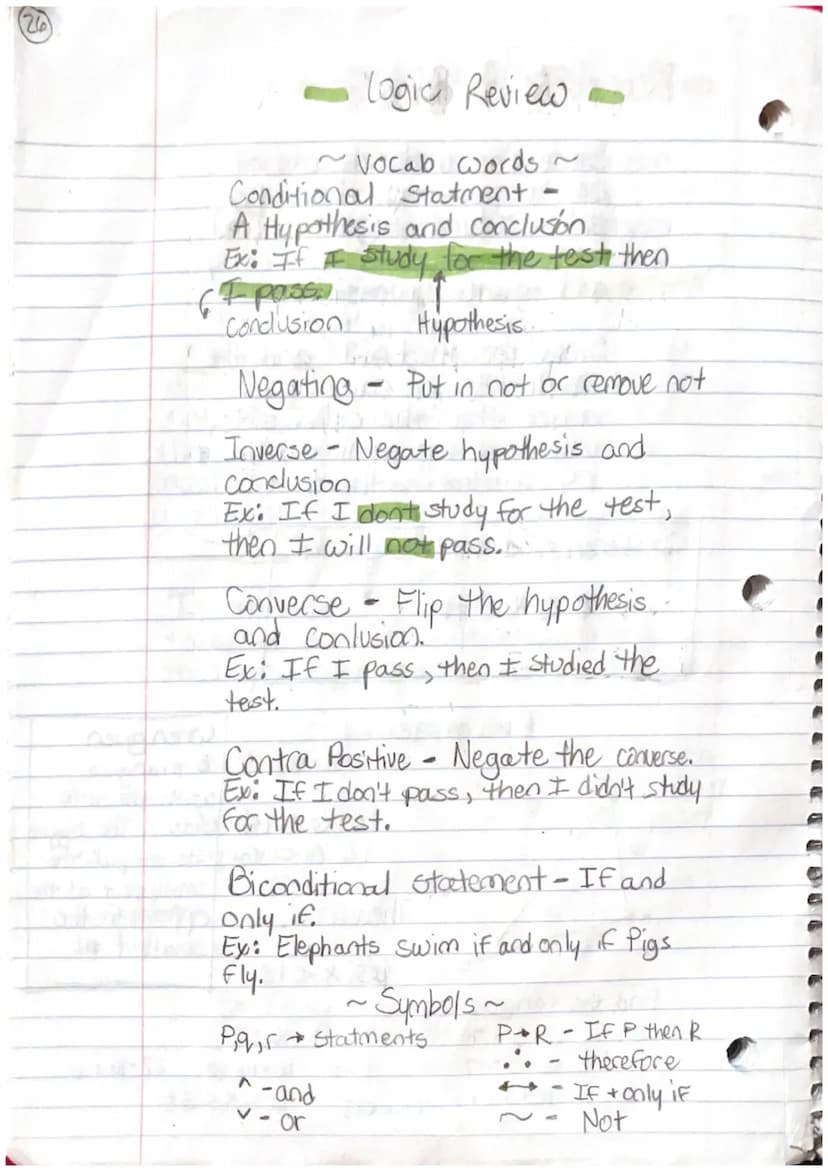 26
Logic Review
~ Vocab words ~
Conditional Statment -
A Hypothesis and conclusion
Ex: If I study for the test then
I pass.
Conclusion Hypothesis
Negating - Put in not or remove not
Inverse - Negate hypothesis and
conclusion
Ex: If I dont study for the test,
then I will not pass.
Converse - Flip the hypothesis
and conlusion.
Ex: If I pass, then I studied the
test.
Contra Positive - Negate the converse.
Ex: If I don't pass, then I didn't study
for the test.
Biconditional statement - If and
only if.
Ex: Elephants swim if and only if Pigs
fly.
~ Symbols ~
P,q,r → Statments P→R - If P then R
∴ - therefore
^ - and ↔ - If + only if
v - or ~ - Not